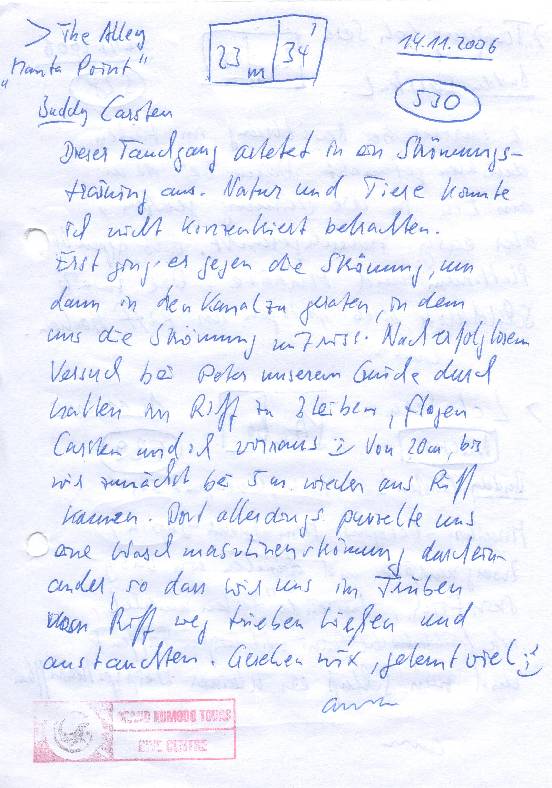 > The Alley
"Manta Point"
23 m 34'
14.11.2006
530
Buddy Carsten
Dieser Tauchgang artetet in ein Strömungs-
training aus. Natur und Tiere konnte
ich nicht konzentriert betrachten.
Erst ging es gegen die Strömung, um
dann in den Kanal zu geraten, in dem
uns die Strömung mitriss. Nach erfolglosem
Versuch bei Peter unserem Guide durch
halten im Riff zu bleiben, flogen
Carsten und ich voraus von 20m, bis
wir zunächst bei 5m wieder ans Riff
kamen. Dort allerdings purzelte uns
eine Waschmaschinenströmung durchein-
ander, so dass wir uns im Trüben
vom Riff weg trieben ließen und
austauchten. Gesehen nix, gelernt viel
GRAND KOMODO TOURS
DIVE CENTRE